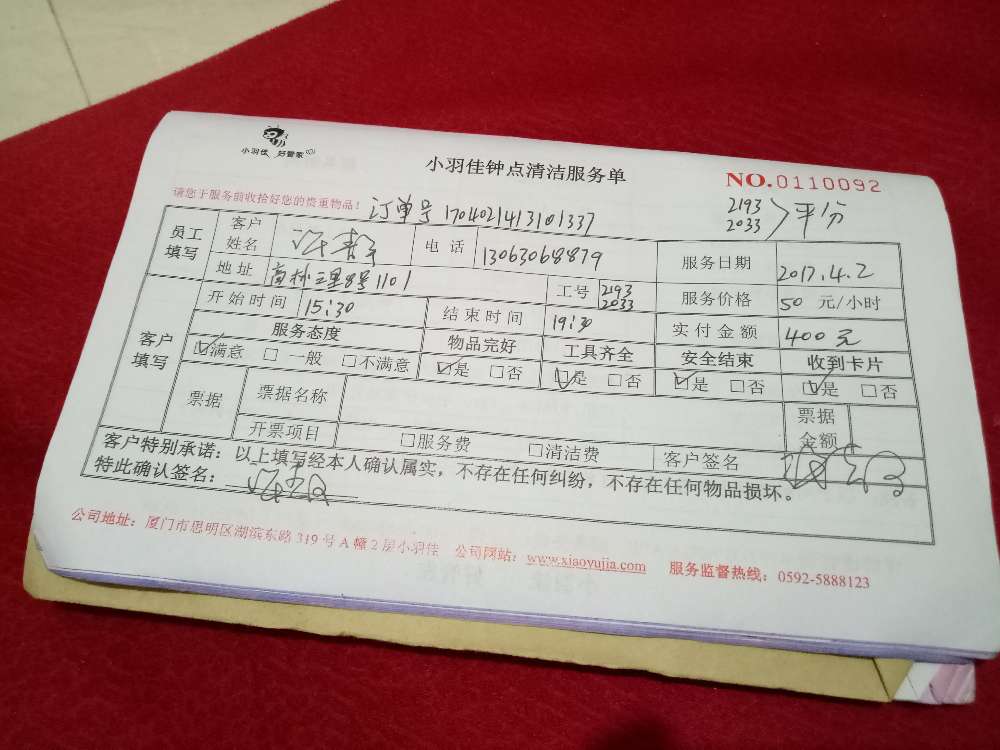 小羽佳 好管家
小羽佳钟点清洁服务单
NO.0110092
请您于服务前收拾好您的贵重物品!
订单号 1704021413101337
2193
2033
平分
员工填写
客户姓名
电话 13063068879
服务日期 2017.4.2
地址 高林三里8号1101
工号 2193 2033
服务价格 50 元/小时
客户填写
开始时间 15:30
结束时间 19:30
实付金额 400元
服务态度 物品完好 工具齐全 安全结束 收到卡片
☑满意 □一般 □不满意 ☑是 □否 ☑是 □否 ☑是 □否 ☑是 □否
票据 票据名称 票据金额
开票项目 □服务费 □清洁费 客户签名
客户特别承诺:以上填写经本人确认属实,不存在任何纠纷,不存在任何物品损坏。
特此确认签名:
公司地址:厦门市思明区湖滨东路319号A幢2层小羽佳 公司网站:www.xiaoyujia.com 服务监督热线:0592-5888123